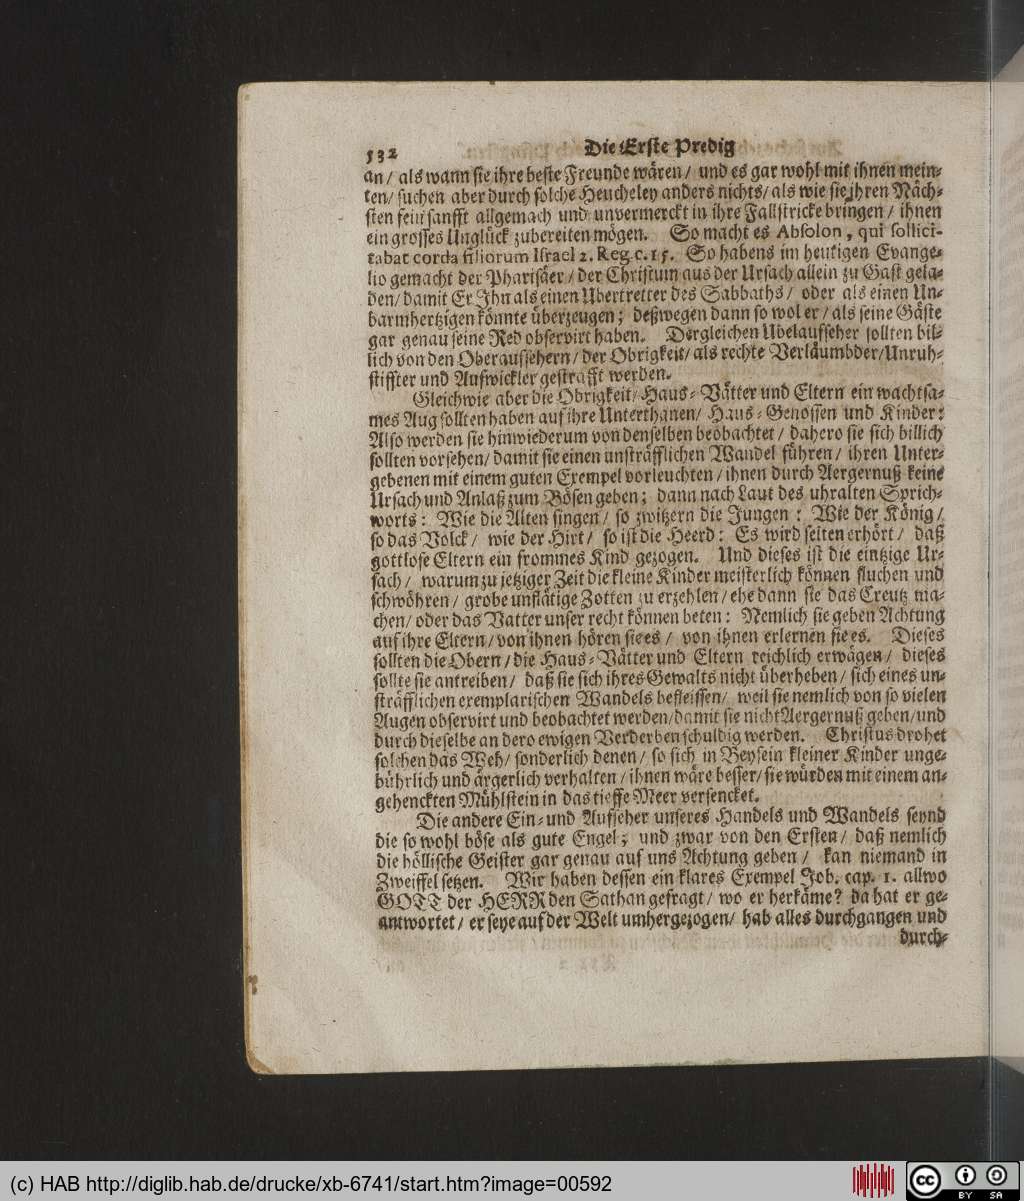 532 Die Erste Predig
an/ als wann sie ihre beste Freunde wären/ und es gar wohl mit ihnen mein-
ten/ suchen aber durch solche Heucheley anders nichts/ als wie sie jhren Näch-
sten fein sanfft allgemach und unvermerckt in ihre Fallstricke bringen/ ihnen
ein grosses Unglück zubereiten mögen. So macht es Absolon, qui sollici-
tabat corda filiorum Israel 2. Reg. c. 15. So habens im heutigen Evange-
lio gemacht der Pharisäer/ der Christum aus der Ursach allein zu Gast gela-
den/ damit Er Jhn als einen Ubertretter des Sabbaths/ oder als einen Un-
barmhertzigen könnte überzeugen; deßwegen dann so wol er/ als seine Gäste
gar genau seine Red observirt haben. Dergleichen Ubelaufseher sollten bil-
lich von den Oberaussehern/ der Obrigkeit/ als rechte Verläumbder/ Unruh-
stiffter und Aufwickler gestrafft werden.
Gleichwie aber die Obrigkeit/ Haus-Vätter und Eltern ein wachtsa-
mes Aug sollten haben auf ihre Unterthanen/ Haus-Genossen und Kinder:
Also werden sie hinwiederum von denselben beobachtet/ dahero sie sich billich
sollten vorsehen/ damit sie einen unsträfflichen Wandel führen/ ihren Unter-
gebenen mit einem guten Exempel vorleuchten/ ihnen durch Aergernuß keine
Ursach und Anlaß zum Bösen geben; dann nach Laut des uhralten Sprich-
worts: Wie die Alten singen/ so zwitzern die Jungen: Wie der König/
so das Volck/ wie der Hirt/ so ist die Heerd: Es wird selten erhört/ daß
gottlose Eltern ein frommes Kind gezogen. Und dieses ist die eintzige Ur-
sach/ warum zu jetziger Zeit die kleine Kinder meisterlich können fluchen und
schwöhren/ grobe unflätige Zotten zu erzehlen/ ehe dann sie das Creutz ma-
chen/ oder das Vatter unser recht können beten: Nemlich sie geben Achtung
auf ihre Eltern/ von ihnen hören sie es/ von ihnen erlernen sie es. Dieses
sollten die Obern/ die Haus-Vätter und Eltern reichlich erwägen/ dieses
sollte sie antreiben/ daß sie sich ihres Gewalts nicht überheben/ sich eines un-
sträfflichen exemplarischen Wandels befleissen/ weil sie nemlich von so vielen
Augen observirt und beobachtet werden/ damit sie nicht Aergernuß geben/ und
durch dieselbe an dero ewigen Verderben schuldig werden. Christus drohet
solchen das Weh/ sonderlich denen/ so sich in Beysein kleiner Kinder unge-
bührlich und ärgerlich verhalten/ ihnen wäre besser/ sie würden mit einem an-
gehenckten Mühlstein in das tieffe Meer versencket.
Die andere Ein- und Aufseher unseres Handels und Wandels seynd
die so wohl böse als gute Engel; und zwar von den Ersten/ daß nemlich
die höllische Geister gar genau auf uns Achtung geben/ kan niemand in
Zweiffel setzen. Wir haben dessen ein klares Exempel Job. cap. 1. allwo
GOTT der HERR den Sathan gefragt/ wo er herkäme? da hat er ge-
antwortet/ er seye auf der Welt umhergezogen/ hab alles durchgangen und
durch-
(c) HAB http://diglib.hab.de/drucke/xb-6741/start.htm?image=00592
cc BY SA